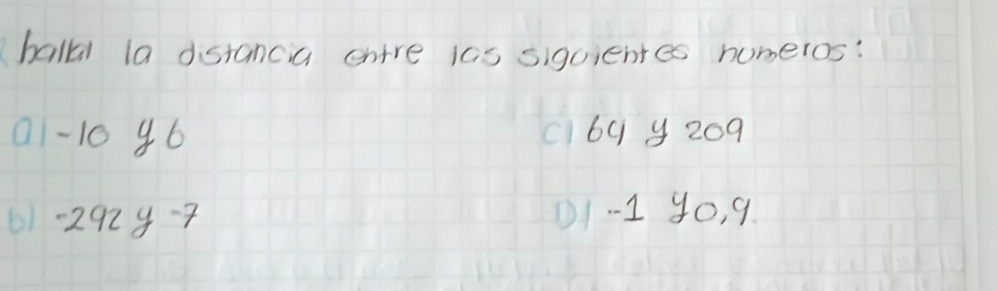 hallar la distancia entre los siguientes numeros:
a) -10 y 6
c) 64 y 209
b) -292 y -7
D) -1 y 0,9.